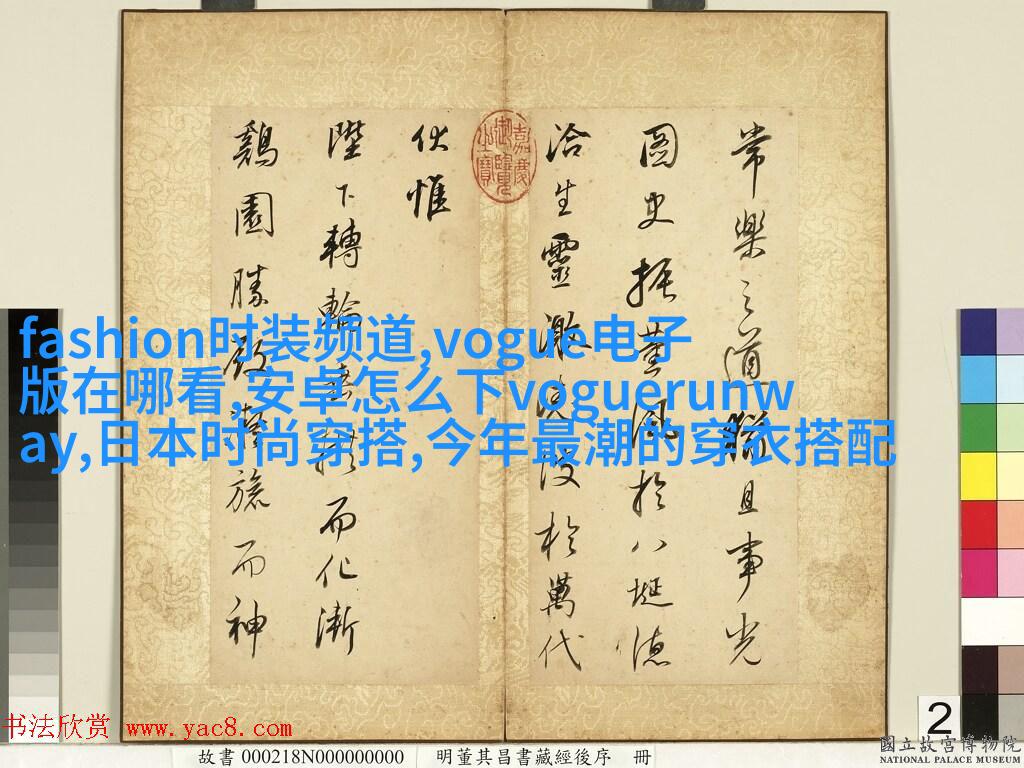 常樂之道
且事光
圖史振葉風於八埏德
洽生靈激流沒於萬代
伏惟
陛下轉輪
而化漸
鷄園勝殿
旋而神
嘉慶御覽之寶
fashion时装频道,vogue电子
版在哪看,安卓怎么下voguerunw
ay,日本时尚穿搭,今年最潮的穿衣搭配
书法欣赏 www.yac8.com
故書 000218N000000000 明董其昌書藏經後序 冊
2
國立故宮博物院
NATIONAL PALACE MUSEUM